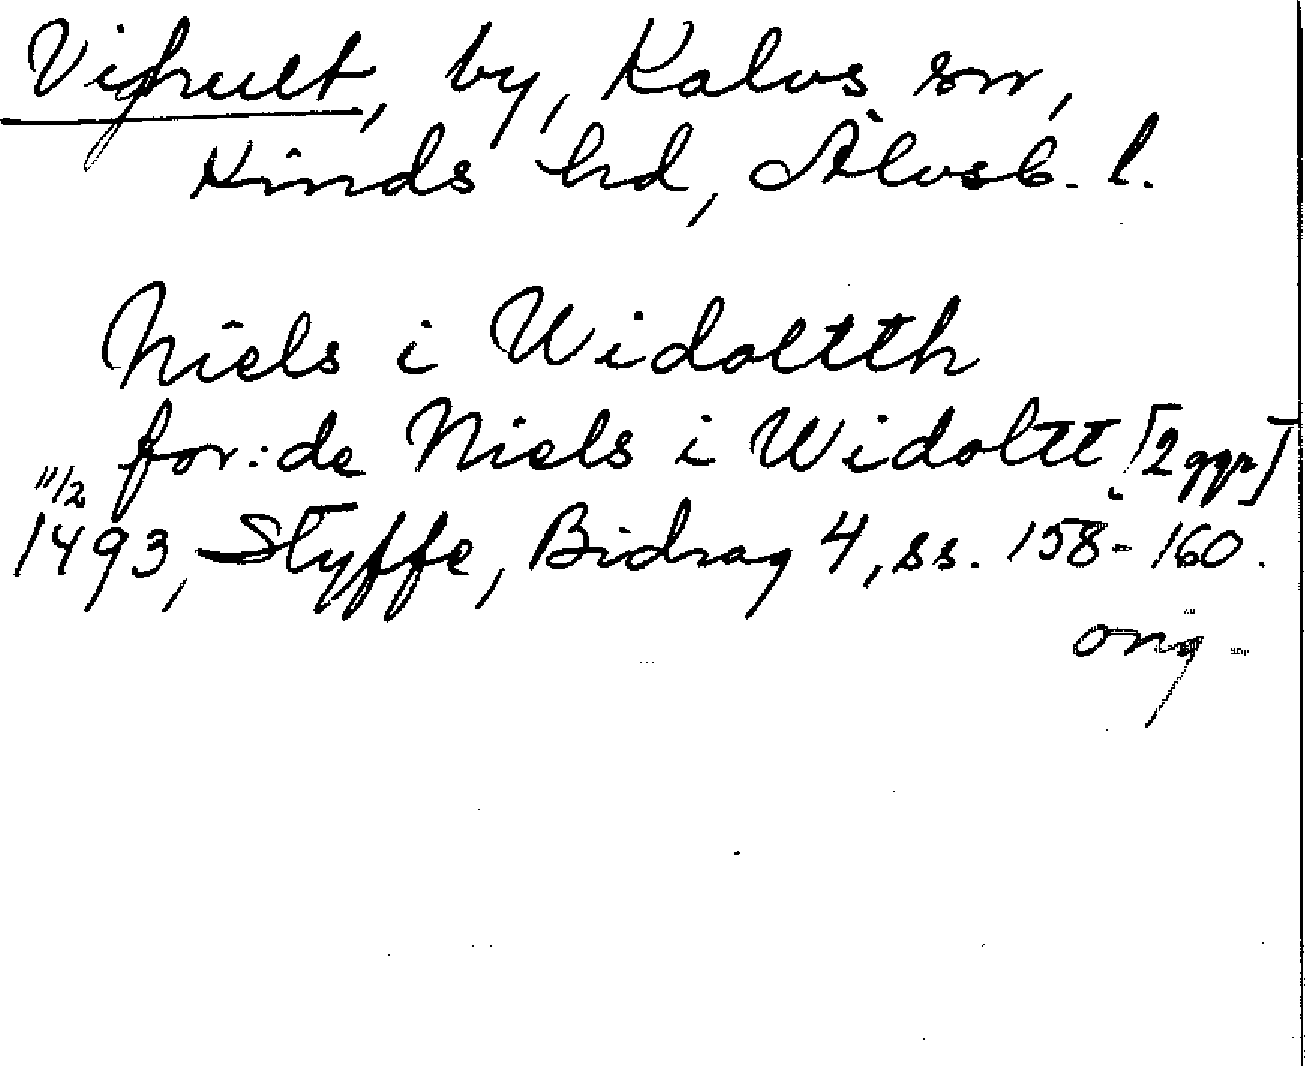 Vighult, by, Kalvs sn,
Kinds hd, Älvsb. l.
Niels i Widoltth
for:de Niels i Widoltt [2 ggr]
11/2
1493, Styffe, Bidrag 4, ss. 158-160.
orig.